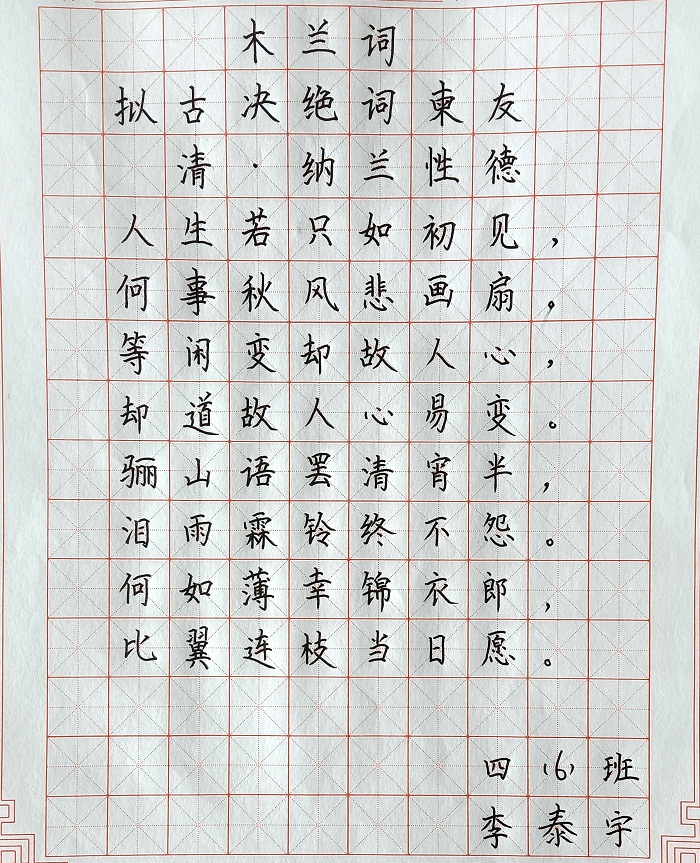 木兰词
拟古决绝词柬友
清·纳兰性德
人生若只如初见，
何事秋风悲画扇。
等闲变却故人心，
却道故人心易变。
骊山语罢清宵半，
泪雨霖铃终不怨。
何如薄幸锦衣郎，
比翼连枝当日愿。
四(6)班
李泰宇